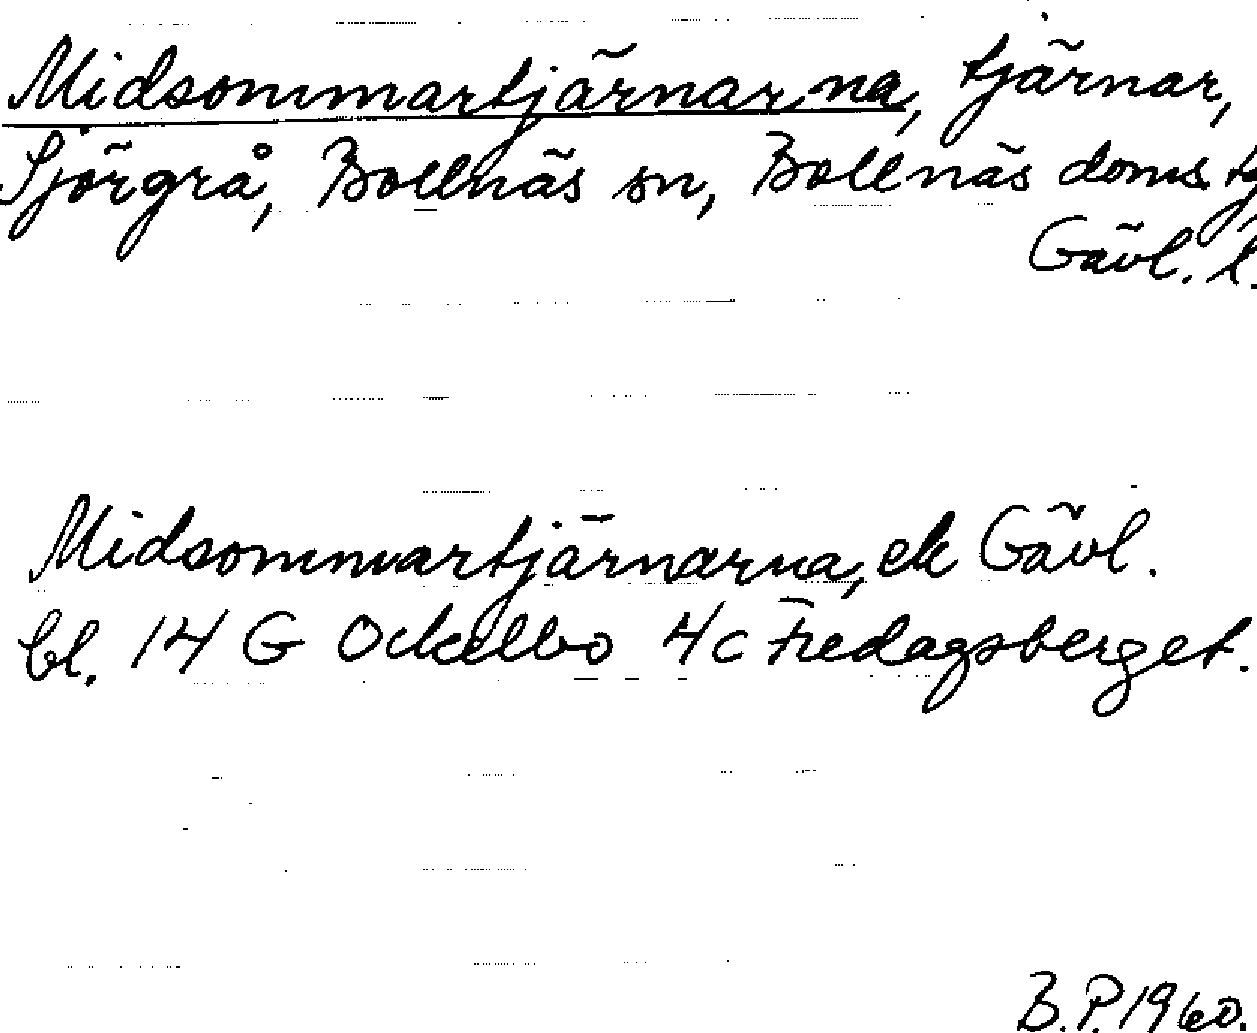 Midsommartjärnarna, tjärnar,
Sjörgrå, Bollnäs sn, Bollnäs doms.
Gävl. l.
Midsommartjärnarna, ek Gävl.
bl. 14 G Ockelbo 4c Fredagsberget.
B.P. 1960.